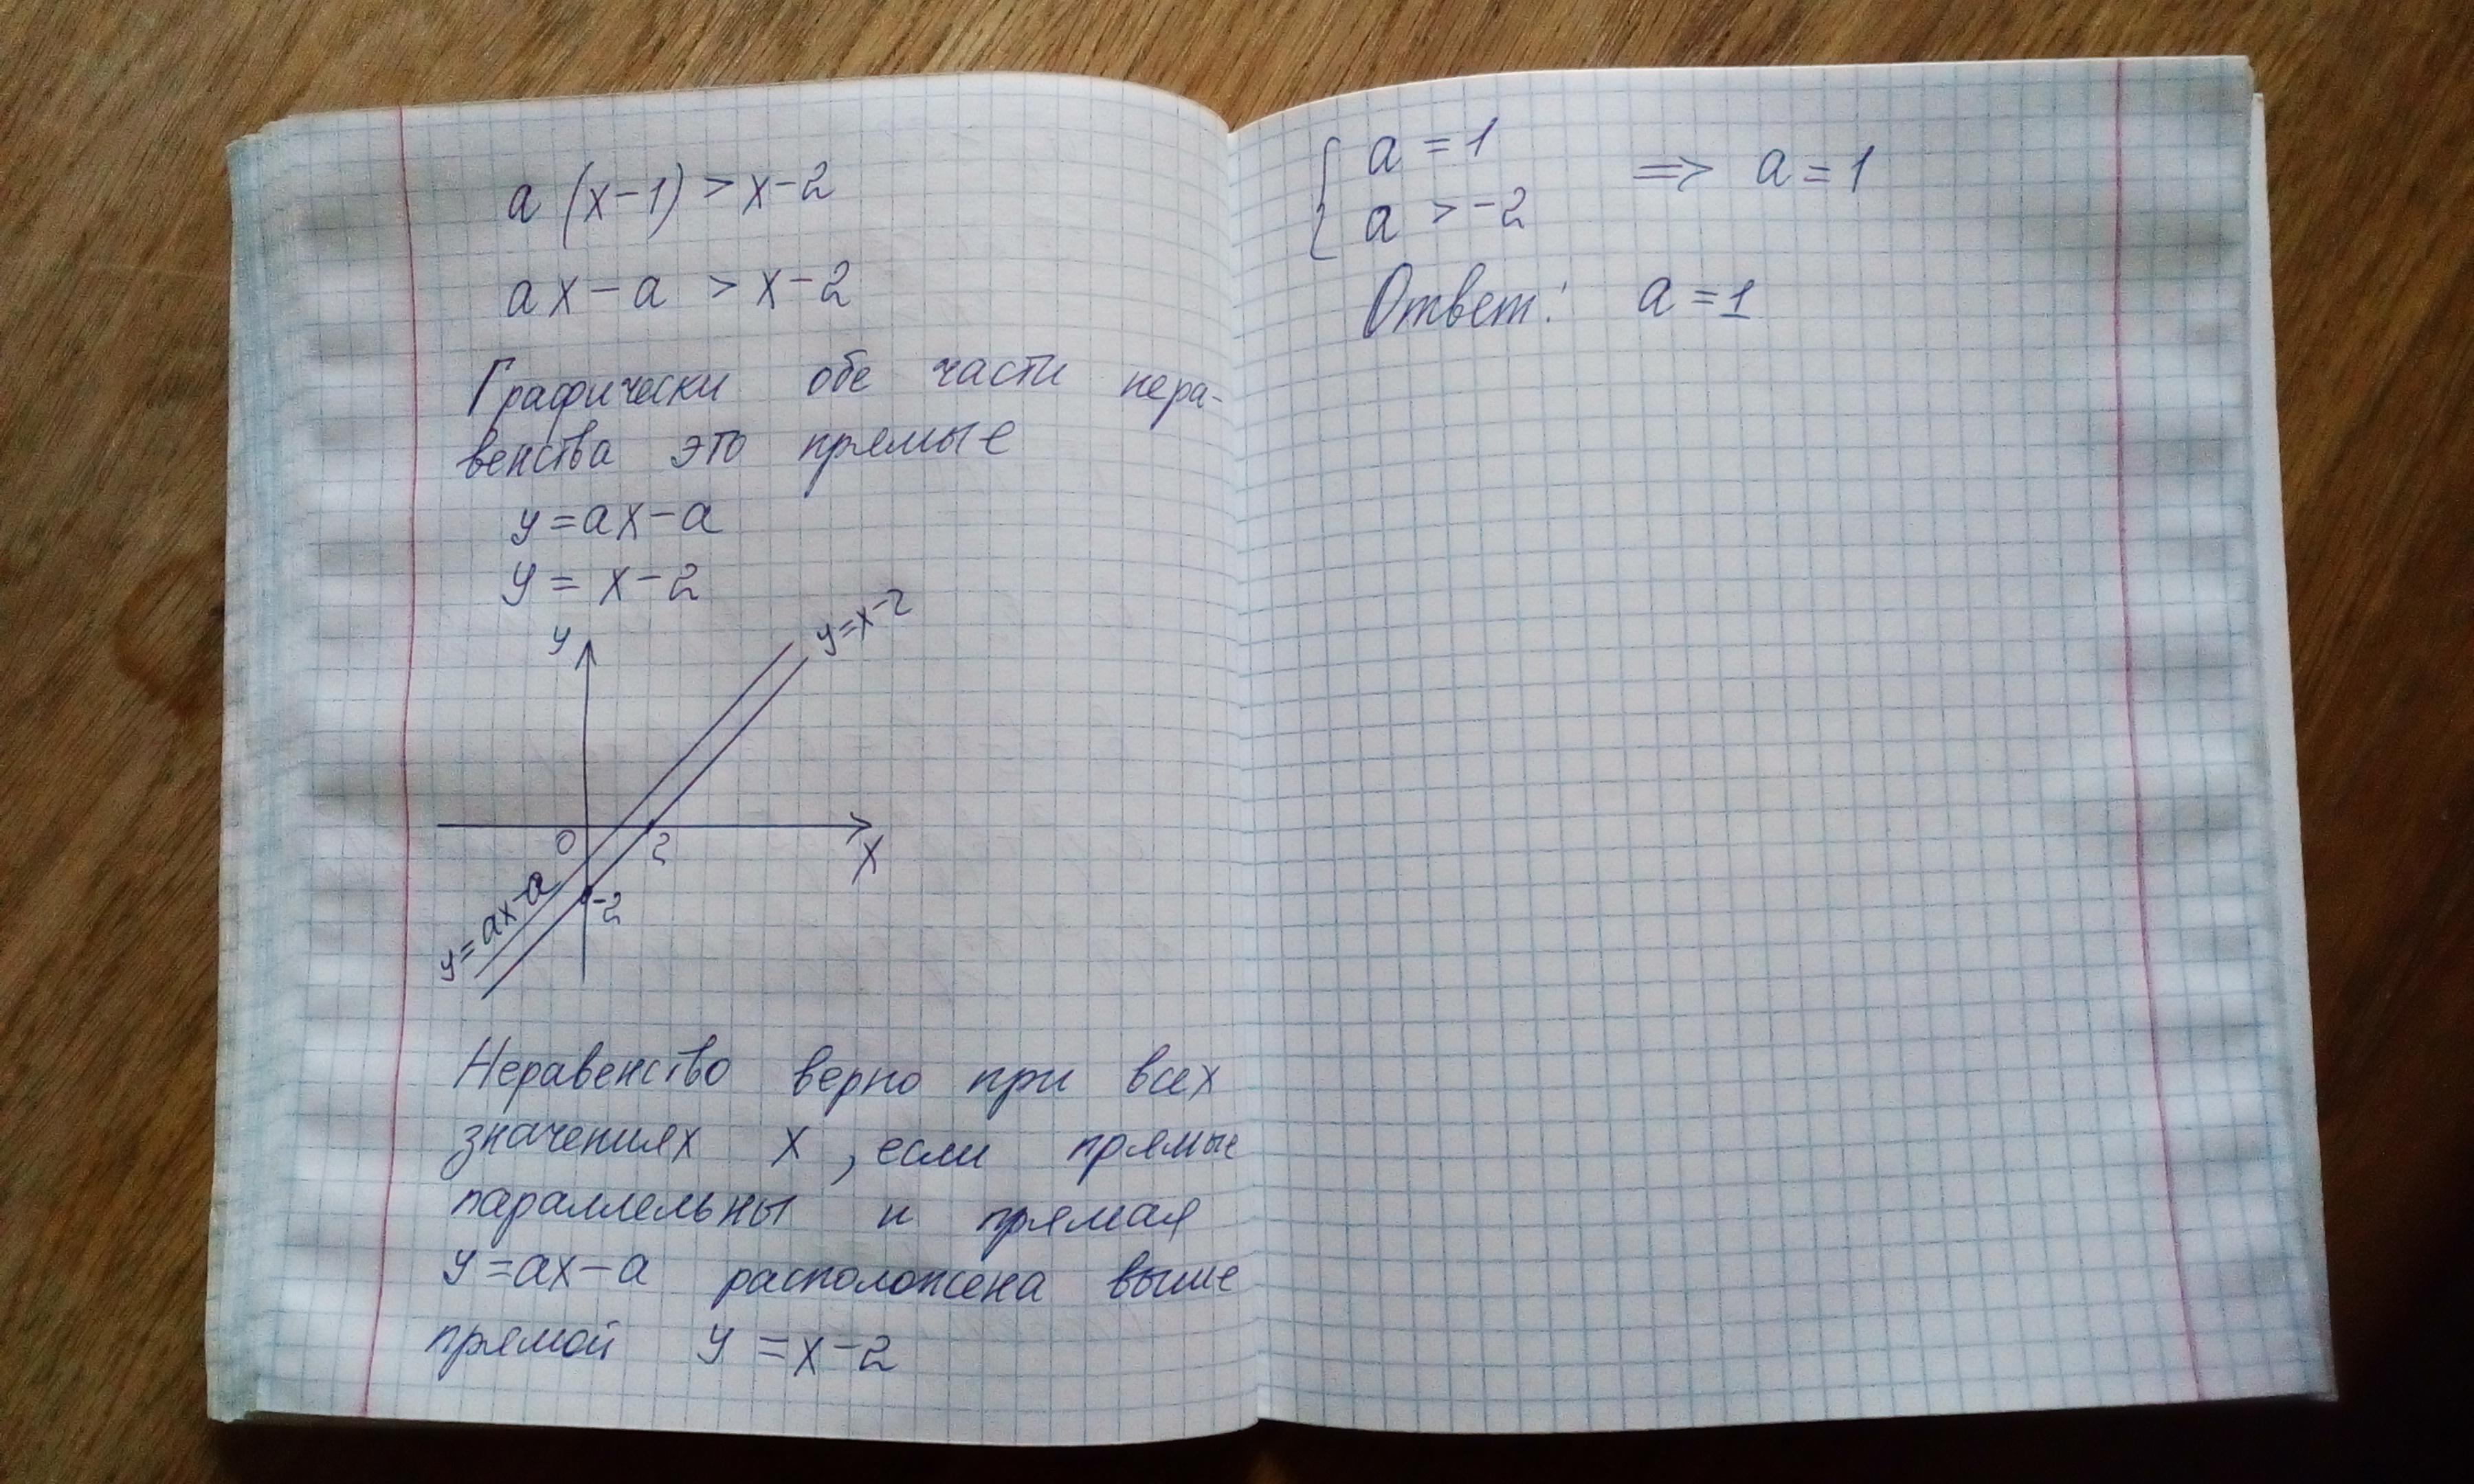 a (x-1) > x-2
ax-a > x-2
Графически обе части нера-
венства это прямые
y=ax-a
y = x-2
y
y=x-2
0
2
x
-2
y=ax-a
Неравенство верно при всех
значениях x, если прямые
параллельны и прямая
y=ax-a расположена выше
прямой y =x-2
{ a =1
a > -2
=> a =1
Ответ: a =1